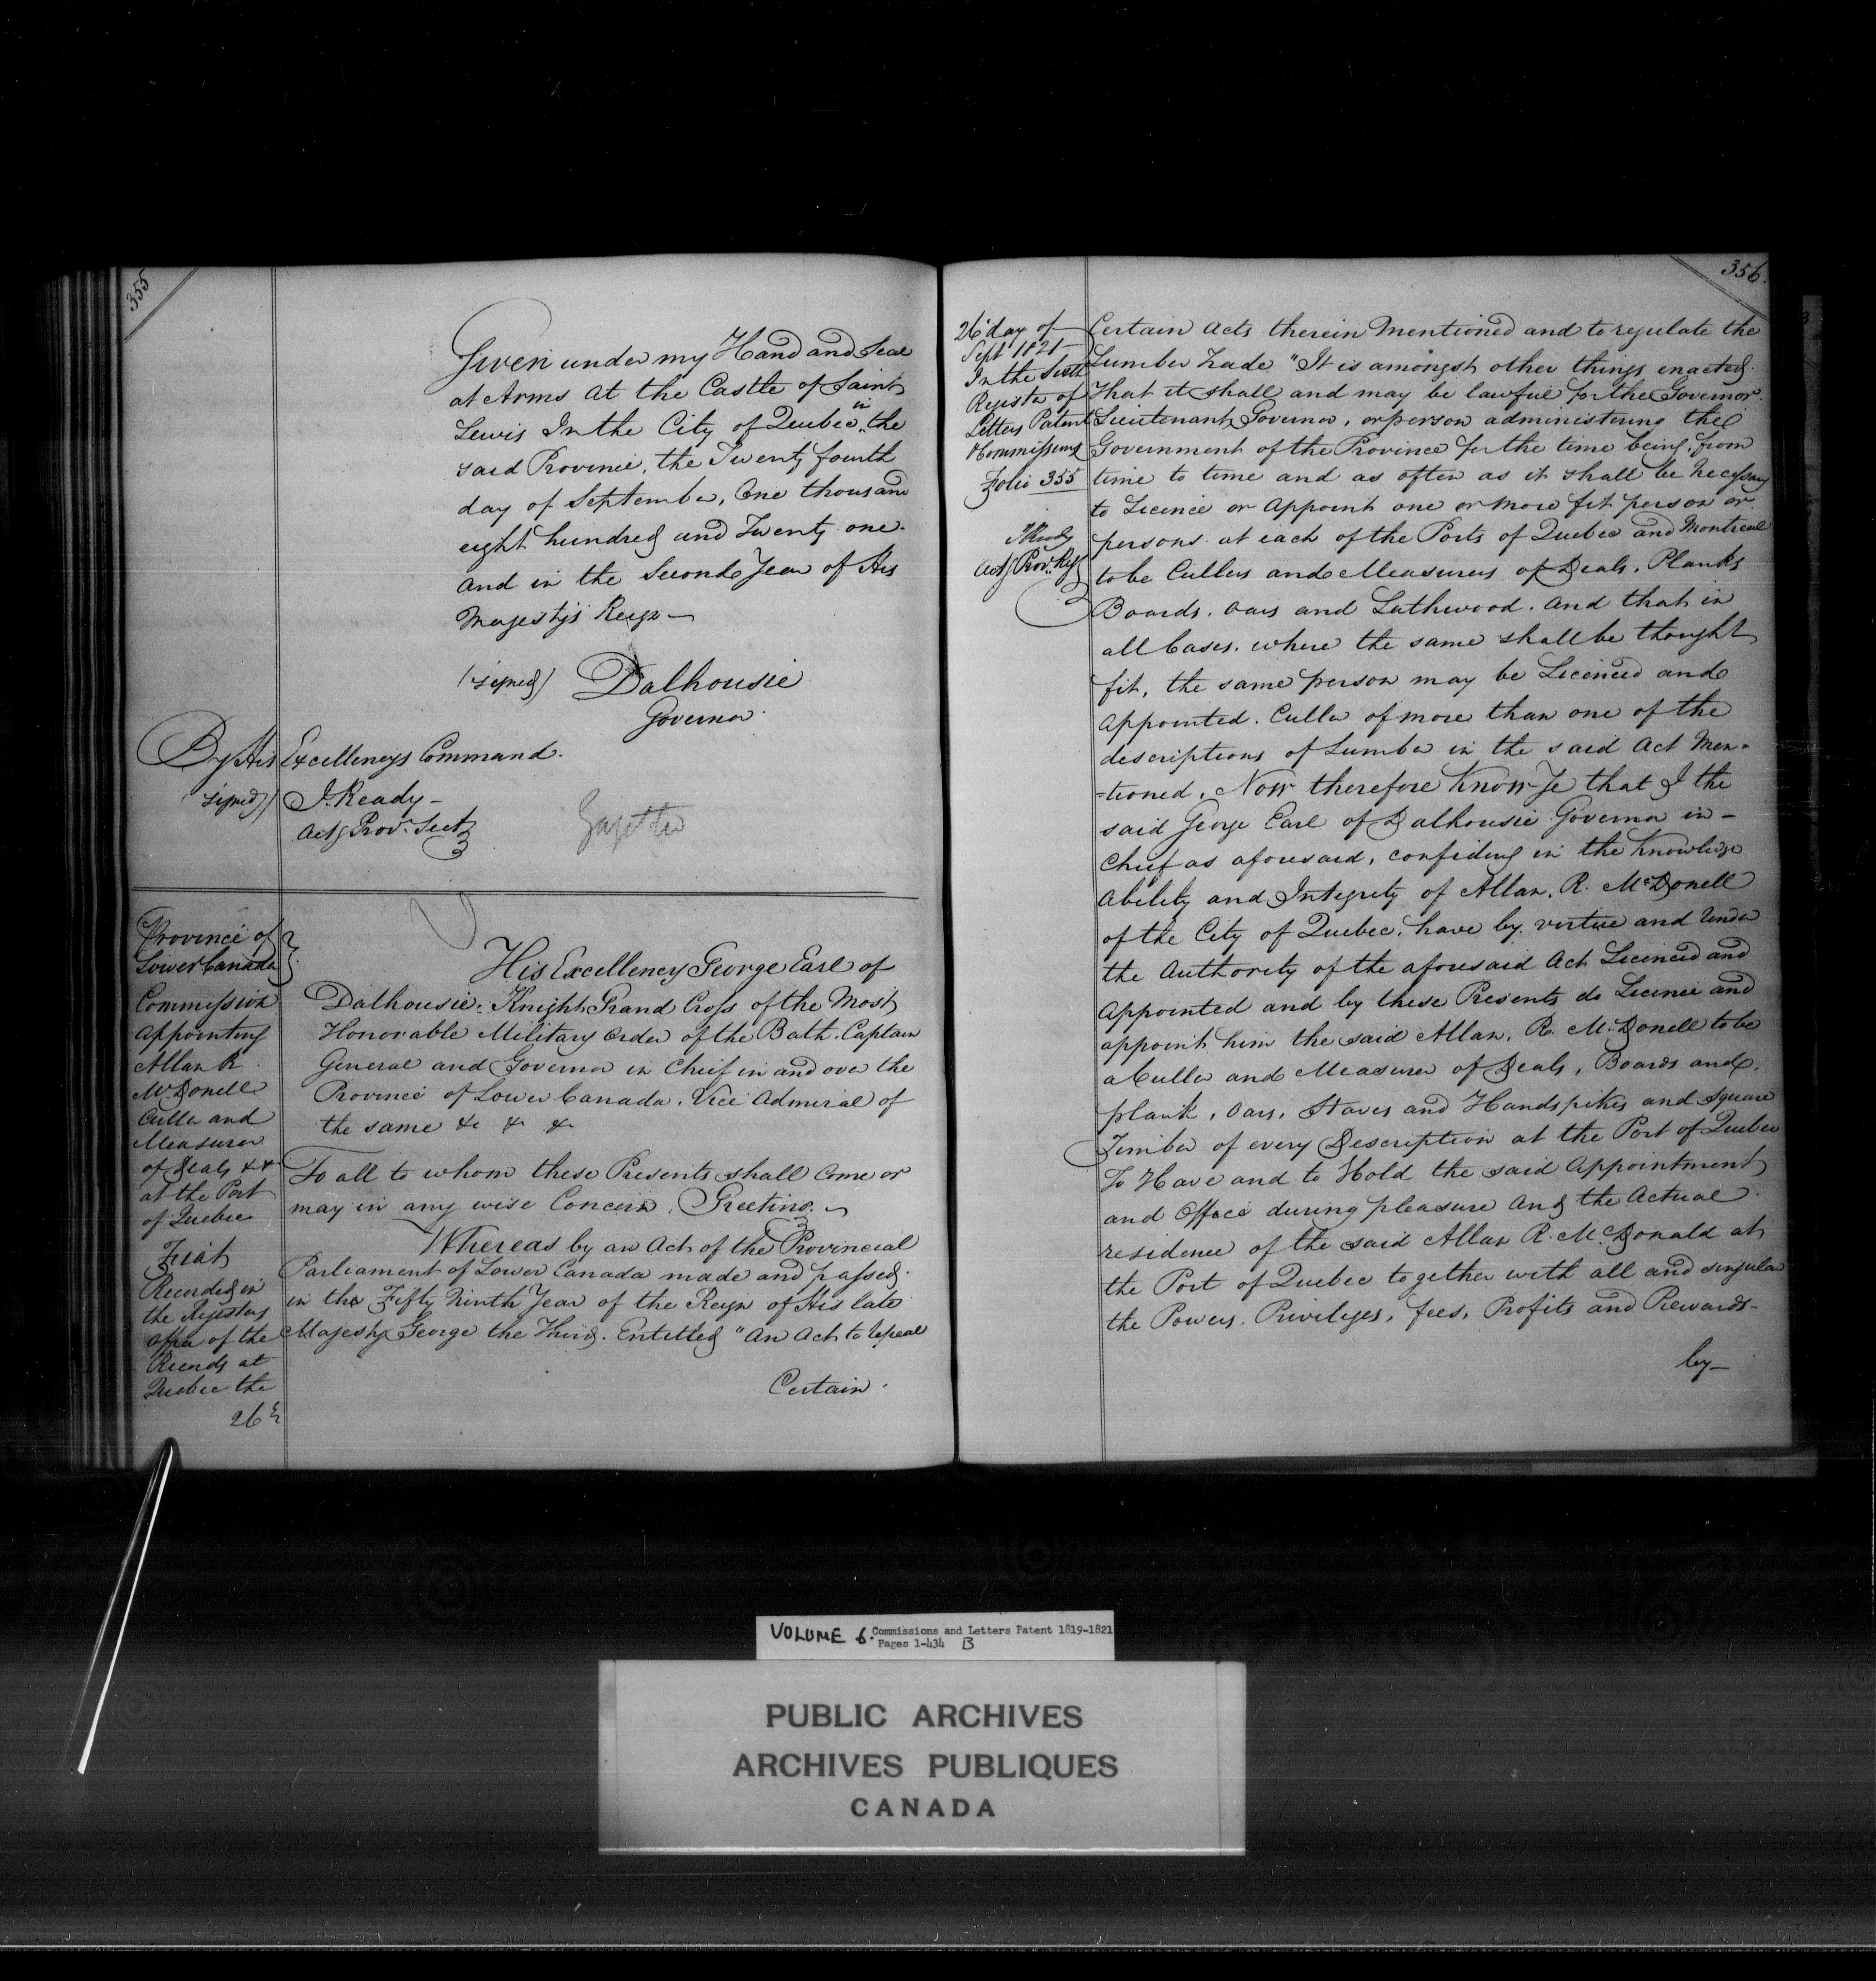 355
Given under my Hand and Seal
at Arms at the Castle of Saint
Lewis In the City of Quebec, in the
said Province, the Twenty fourth
day of September, One thousand
eight hundred and Twenty one.
and in the Second Year of His
Majesty's Reign —
(signed) Dalhousie
Governor.
By His Excellencys Command.
(signed) J. Ready —
Actg Provl. Secty
Gazette
Province of
Lower Canada
Commission
appointing
Allan R.
McDonell
Culler and
Measurer
of Deals &&
at the Port
of Quebec
Fiat
Recorded in
the Registers
office of the
Records at
Quebec the
26th
His Excellency George Earl of
Dalhousie, Knight Grand Cross of the Most
Honorable Military Order of the Bath. Captain
General and Governor in Chief in and over the
Province of Lower Canada. Vice Admiral of
the same &c & &
To all to whom these Presents shall come or
may in any wise Concern. Greeting. —
Whereas by an Act of the Provincial
Parliament of Lower Canada made and passed.
in the Fifty Ninth Year of the Reign of His late
Majesty George the Third. Entitled "An Act to repeal
Certain.
356.
26th day of
Sept 1821 —
In the Sixth
Register of
Letters Patent
& Commissions
Folio 355
J Ready
Actg Provl. Reg
Certain Acts therein Mentioned and to regulate the
Lumber trade "It is amongst other things enacted.
That it shall and may be lawful for the Governor.
Lieutenant Governor, or person administering the
Government of the Province for the time being, from
time to time and as often as it shall be Necessary
to Licence or Appoint one or more fit person or
persons. at each of the Ports of Quebec and Montreal
to be Cullers and Measurers of Deals. Planks
Boards. Oars and Lathwood. And that in
all Cases. where the same shall be thought
fit, the same person may be Licenced and
Appointed. Culler of more than one of the
descriptions of Lumber in the said Act Men=
=tioned. Now therefore Know Ye that I the
said George Earl of Dalhousie Governor in —
Chief as aforesaid, confiding in the Knowledge
Ability and Integrity of Allan. R. McDonell
of the City of Quebec, have by virtue and Under
the Authority of the aforesaid Act Licenced and
Appointed and by these Presents do Licence and
appoint him the said Allan. R. McDonell to be
a Culler and Measurer of Deals, Boards and.
plank, Oars, Staves and Handspikes and Square
Timber of every Description at the Port of Quebec
To Have and to Hold the said Appointment
and Office during pleasure And the Actual
residence of the said Allan R. McDonald at
the Port of Quebec together with all and singular
the Powers. Privileges, fees, Profits and Rewards —
by —
VOLUME 6. Commissions and Letters Patent 1819-1821
Pages 1-434 B
PUBLIC ARCHIVES
ARCHIVES PUBLIQUES
CANADA